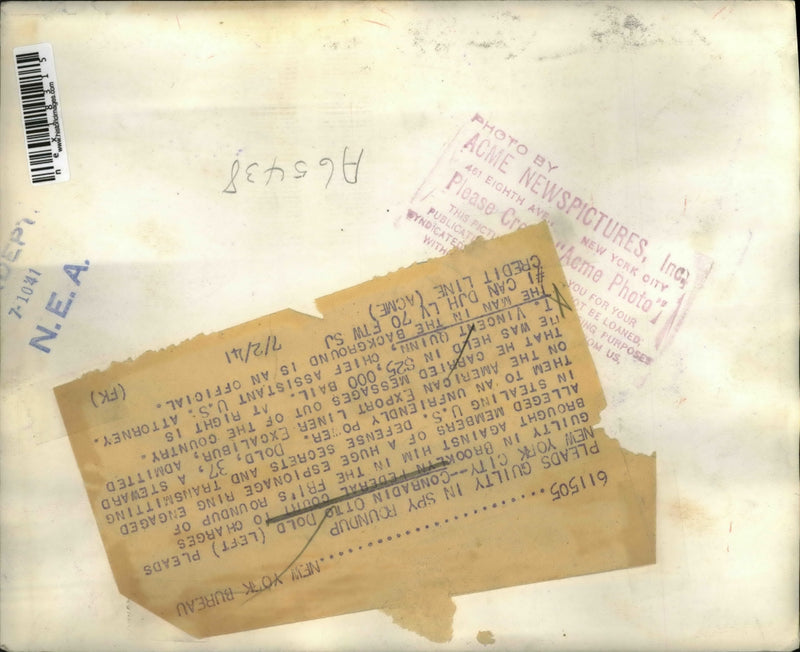 nex 18315
www.historicimages.com
DEPT.
7-1041
N.E.A.
A65438
PHOTO BY
ACME NEWSPICTURES, Inc.
461 EIGHTH AVE. NEW YORK CITY
Please "Acme Photo"
THIS
YOU FOR YOUR
NOT BE LOANED,
SYNDICATED PURPOSES
WITH FROM US.
611505 NEW YORK BUREAU
PLEADS GUILTY IN SPY ROUNDUP
NEW YORK CITY--CONRADIN OTTO DOLD (LEFT) PLEADS
GUILTY IN BROOKLYN FEDERAL COURT TO CHARGES
BROUGHT AGAINST HIM IN THE ROUNDUP OF
ALLEGED MEMBERS OF A HUGE ESPIONAGE RING ENGAGED
IN STEALING U.S. DEFENSE SECRETS AND TRANSMITTING
THEM TO AN UNFRIENDLY POWER. DOLD, 37, A STEWARD
ON AMERICAN EXPORT LINER EXCALIBUR, ADMITTED
THAT HE CARRIED MESSAGES OUT OF THE COUNTRY.
HE WAS HELD IN $25,000 BAIL. AT THE RIGHT IS
T. VINCENT QUINN, CHIEF ASSISTANT U.S. ATTORNEY.
THE MAN IN THE BACKGROUND IS AN OFFICIAL.
#1 CAN DJH LV 70 FTW SJ (FK)
CREDIT LINE (ACME) 7/2/41